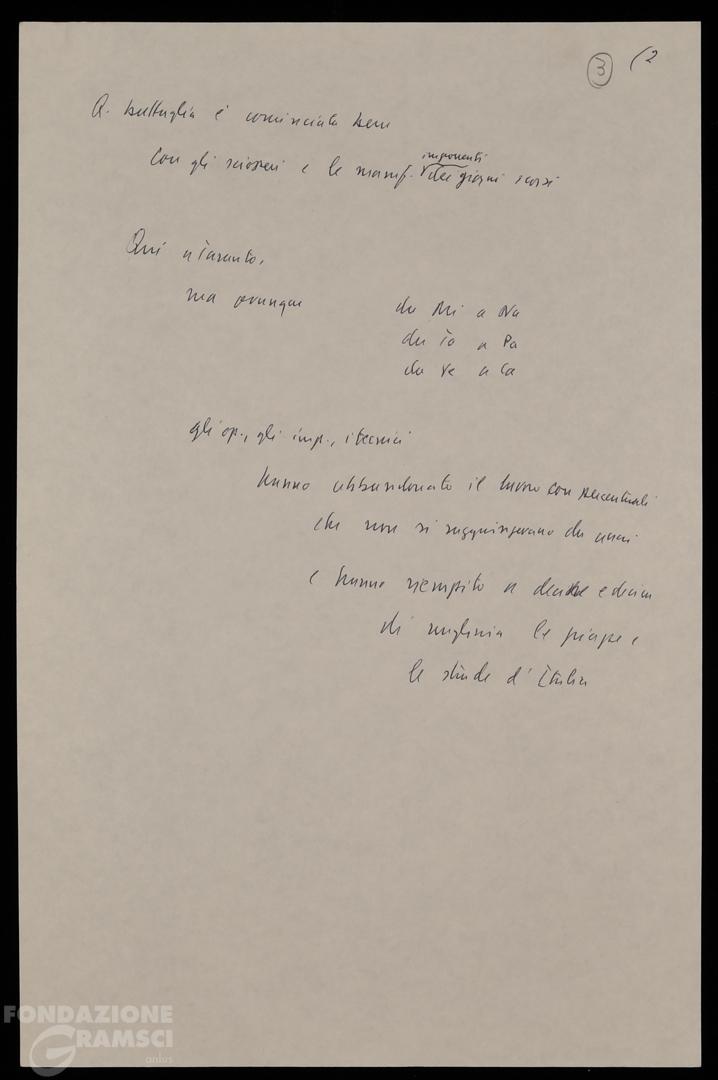 3 (2
Q. battaglia è cominciata bene
imponenti
Con gli scioperi e le manif. dei giorni scorsi
Qui a Taranto,
ma ovunque da Mi a Na
da To a Pa
da Ve a Ca
gli op., gli imp., i tecnici
hanno abbandonato il lavoro con percentuali
che non si raggiungevano da anni
e hanno riempito a decine e decine
di migliaia le piazze e
le strade d'Italia
FONDAZIONE
GRAMSCI
onlus